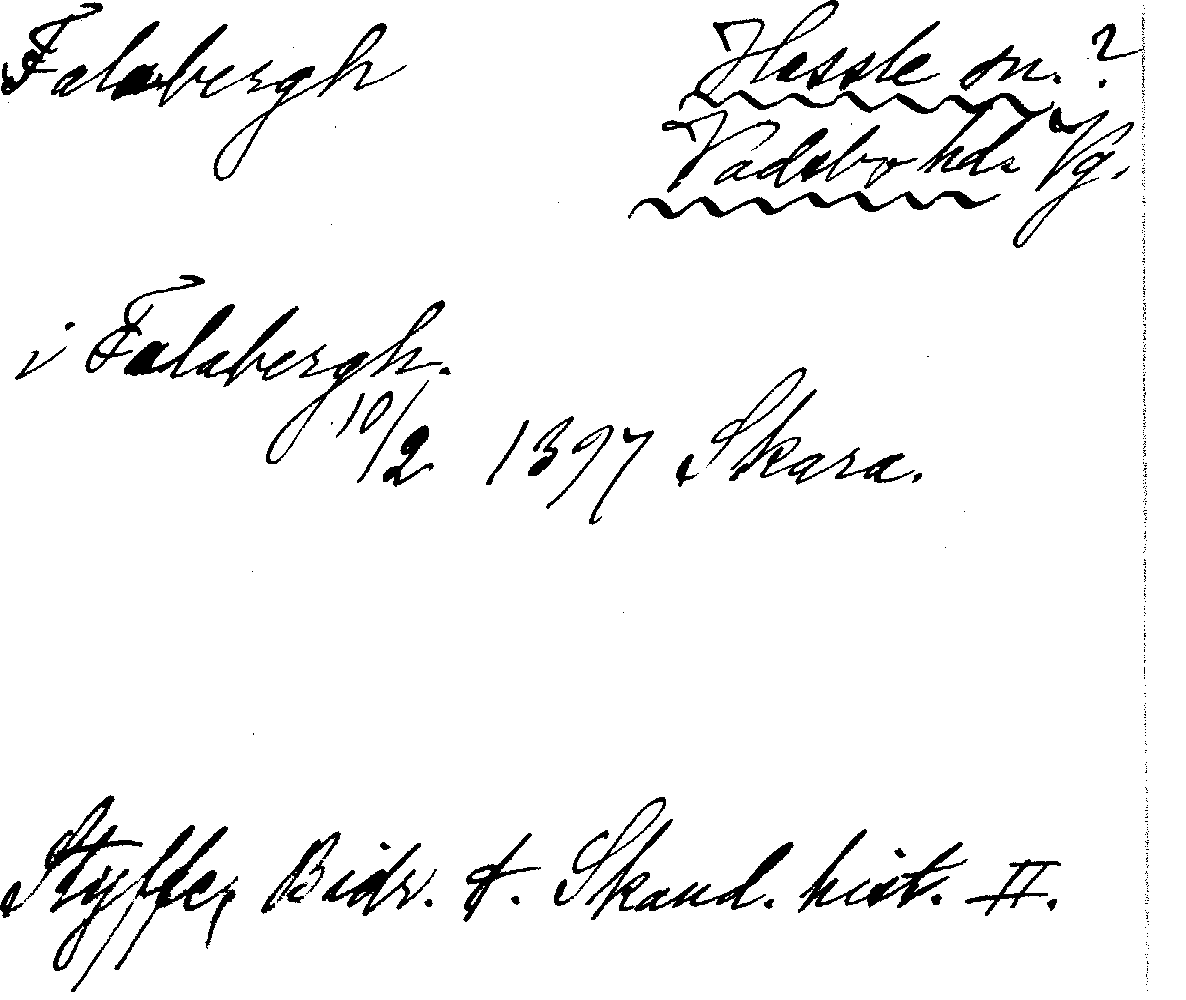 Falabergh
Hassle sn. ?
Vadsbo hd. Vg.
i Falabergh.
10/2 1397 Skara.
Styffe, Bidr. t. Skand. hist. II.